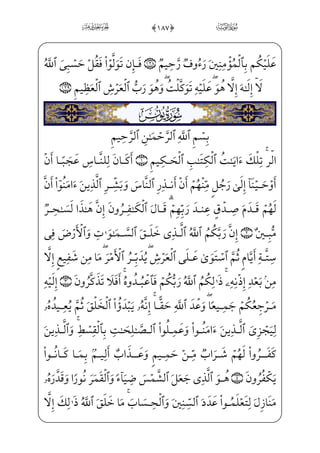 ﴿١٨٧﴾
عَلَيْكُم بِٱلْمُؤْمِنِينَ رَءُوفٌ رَّحِيمٌ ﴿١٢٨﴾ فَإِن تَوَلَّوْا۟ فَقُلْ حَسْبِىَ ٱللَّهُ
لَآ إِلَٰهَ إِلَّا هُوَ ۖ عَلَيْهِ تَوَكَّلْتُ ۖ وَهُوَ رَبُّ ٱلْعَرْشِ ٱلْعَظِيمِ ﴿١٢٩﴾
سُورَةُ يُونُسَ
بِسْمِ ٱللَّهِ ٱلرَّحْمَٰنِ ٱلرَّحِيمِ
الٓر ۚ تِلْكَ ءَايَٰتُ ٱلْكِتَٰبِ ٱلْحَكِيمِ ﴿١﴾ أَكَانَ لِلنَّاسِ عَجَبًا أَنْ
أَوْحَيْنَآ إِلَىٰ رَجُلٍ مِّنْهُمْ أَنْ أَنذِرِ ٱلنَّاسَ وَبَشِّرِ ٱلَّذِينَ ءَامَنُوٓا۟ أَنَّ
لَهُمْ قَدَمَ صِدْقٍ عِندَ رَبِّهِمْ ۗ قَالَ ٱلْكَٰفِرُونَ إِنَّ هَٰذَا لَسَٰحِرٌ
مُّبِينٌ ﴿٢﴾ إِنَّ رَبَّكُمُ ٱللَّهُ ٱلَّذِى خَلَقَ ٱلسَّمَٰوَٰتِ وَٱلْأَرْضَ فِى
سِتَّةِ أَيَّامٍ ثُمَّ ٱسْتَوَىٰ عَلَى ٱلْعَرْشِ ۖ يُدَبِّرُ ٱلْأَمْرَ ۖ مَا مِن شَفِيعٍ إِلَّا
مِنۢ بَعْدِ إِذْنِهِۦ ۚ ذَٰلِكُمُ ٱللَّهُ رَبُّكُمْ فَٱعْبُدُوهُ ۚ أَفَلَا تَذَكَّرُونَ ﴿٣﴾ إِلَيْهِ
مَرْجِعُكُمْ جَمِيعًا ۖ وَعْدَ ٱللَّهِ حَقًّا ۚ إِنَّهُۥ يَبْدَؤُا۟ ٱلْخَلْقَ ثُمَّ يُعِيدُهُۥ
لِيَجْزِىَ ٱلَّذِينَ ءَامَنُوا۟ وَعَمِلُوا۟ ٱلصَّٰلِحَٰتِ بِٱلْقِسْطِ ۚ وَٱلَّذِينَ
كَفَرُوا۟ لَهُمْ شَرَابٌ مِّنْ حَمِيمٍ وَعَذَابٌ أَلِيمٌۢ بِمَا كَانُوا۟
يَكْفُرُونَ ﴿٤﴾ هُوَ ٱلَّذِى جَعَلَ ٱلشَّمْسَ ضِيَآءً وَٱلْقَمَرَ نُورًا وَقَدَّرَهُۥ
مَنَازِلَ لِتَعْلَمُوا۟ عَدَدَ ٱلسِّنِينَ وَٱلْحِسَابَ ۚ مَا خَلَقَ ٱللَّهُ ذَٰلِكَ إِلَّا